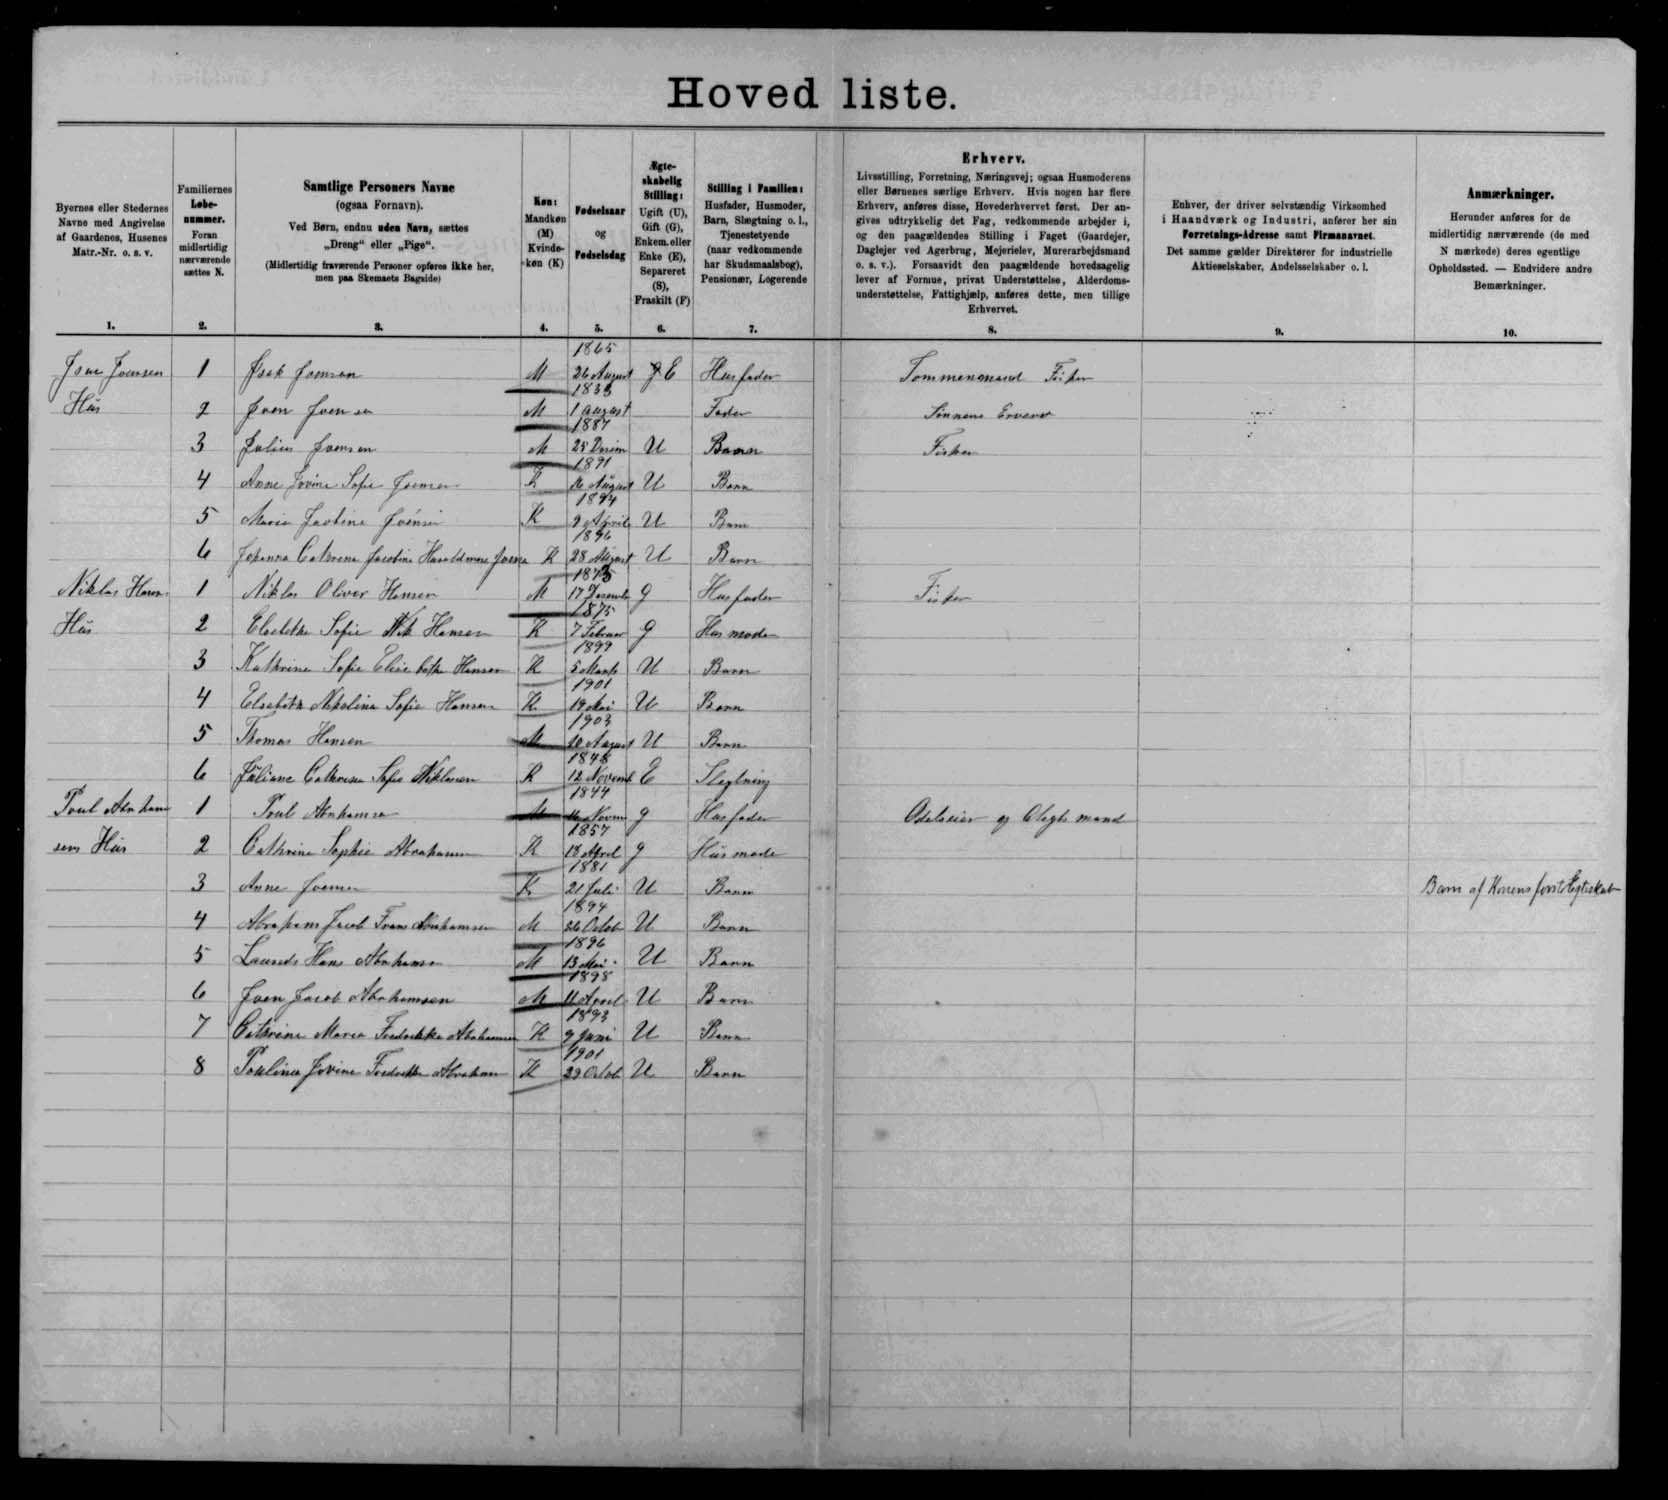 Hoved liste.
Byernes eller Stedernes
Navne med Angivelse
af Gaardenes, Husenes
Matr.-Nr. o. s. v.
1.
Familiernes
Løbe-
nummer.
Foran
midlertidig
nærværende
sættes N.
2.
Samtlige Personers Navne
(ogsaa Fornavn).
Ved Børn, endnu uden Navn, sættes
„Dreng“ eller „Pige“.
(Midlertidig fraværende Personer opføres ikke her,
men paa Skemaets Bagside)
3.
Køn:
Mandkøn
(M)
Kvinde-
køn (K)
4.
Fødselsaar
og
Fødselsdag
5.
Ægte-
skabelig
Stilling:
Ugift (U),
Gift (G),
Enkem. eller
Enke (E),
Separeret
(S),
Fraskilt (F)
6.
Stilling i Familien:
Husfader, Husmoder,
Barn, Slægtning o. l.,
Tjenestetyende
(naar vedkommende
har Skudsmaalsbog),
Pensionær, Logerende
7.
Erhverv.
Livsstilling, Forretning, Næringsvej; ogsaa Husmoderens
eller Børnenes særlige Erhverv. Hvis nogen har flere
Erhverv, anføres disse, Hovederhvervet først. Der an-
gives udtrykkelig det Fag, vedkommende arbejder i,
og den paagældendes Stilling i Faget (Gaardejer,
Daglejer ved Agerbrug, Mejerielev, Murerarbejdsmand
o. s. v.). Forsaavidt den paagældende hovedsagelig
lever af Formue, privat Understøttelse, Alderdoms-
understøttelse, Fattighjælp, anføres dette, men tillige
Erhvervet.
8.
Enhver, der driver selvstændig Virksomhed
i Haandværk og Industri, anfører her sin
Forretnings-Adresse samt Firmanavnet.
Det samme gælder Direktører for industrielle
Aktieselskaber, Andelsselskaber o. l.
9.
Anmærkninger.
Herunder anføres for de
midlertidig nærværende (de med
N mærkede) deres egentlige
Opholdssted. — Endvidere andre
Bemærkninger.
10.
Joensen 1 Joensen M 1865 26 August E Husfader Tømmermand Fisker
Hus 2 Joen Joensen M 1 August Fader Sønnens
3 Julius Joensen M 1887 25 U Barn Fisker
4 Anne Sofie Joensen K 1891 16 August U Barn
5 Maria Joensen K 1894 9 April U Barn
6 Johanna Cathrine Jacobine K 1896 28 August U Barn
Niklas Hansens 1 Niklas Oliver Hansen M 17 December g Husfader Fisker
Hus 2 Elsebeth Sofie Hansen K 1875 7 Februar g Husmoder
3 Kathrine Sofie Elisebeth Hansen K 1899 5 Marts U Barn
4 Elsebeth Nikolina Sofie Hansen K 1901 19 Mai U Barn
5 Thomas Hansen M 1903 10 August U Barn
6 Juliane Cathrine Sofie Niklasen K 1848 12 Novemb E Slegtning
Poul Abraham 1 Poul Abrahamsen M 1844 g Husfader Odelseier og
sens Hus 2 Cathrine Sophie Abrahamsen K 1857 18 April g Husmoder
3 Anne Joensen K 1881 21 Juli U Barn Barn af Konens første Egteskab
4 Abraham Jacob Frans Abrahamsen M 1894 26 Octob U Barn
5 Laurids Hans Abrahamsen M 1896 13 Mai U Barn
6 Joen Jacob Abrahamsen M 1898 11 April U Barn
7 Cathrine Maria Fredrikka Abrahamsen K 1893 9 Juni U Barn
8 Paulina Jovine Fredrikka Abraham K 1901 29 Octob U Barn